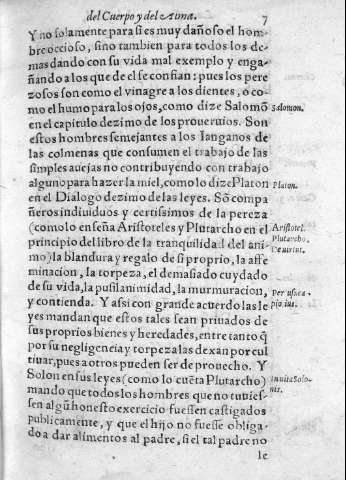 del Cuerpo y del Alma. 7
Y no solamente para si es muy dañoso el hom-
bre occioso, sino tambien para todos los de-
mas dando con su vida mal exemplo y enga-
ñando a los que de el se confian: pues los pere
zosos son como el vinagre a los dientes, o co-
mo el humo para los ojos, como dize Salomõ
Salomon.
en el capitulo dezimo de los prouerbios. Son
estos hombres semejantes a los langanos de
las colmenas que consumen el trabajo de las
simples auejas no contribuyendo con trabajo
alguno para hazer la miel, como lo dize Platon
Platon.
en el Dialogo dezimo de las leyes. Sõ compa
ñeros indiuiduos y certissimos de la pereza
(como lo enseña Aristoteles y Plutarcho en el
Aristotel.
Plutarcho.
principio del libro de la tranquilidad del ani
mo) la blandura y regalo de si proprio, la affe
minacion, la torpeza, el demasiado cuydado
de su vida, la pusilanimidad, la murmuracion,
y contienda. Y assi con grande acuerdo las le
Per usuca-
pio.ius.
yes mandan que estos tales sean priuados de
sus proprios bienes y heredades, entre tanto q̃
por su negligencia y torpeza las dexan por cul
tiuar, pues a otros pueden ser de prouecho. Y
Solon en sus leyes (como lo cuẽta Plutarcho)
In uita Solo-
nis.
mando que todos los hombres que no tuuies-
sen algũ honesto exercicio fuessen castigados
publicamente, y que el hijo no fuesse obliga-
do a dar alimentos al padre, si el tal padre no
le